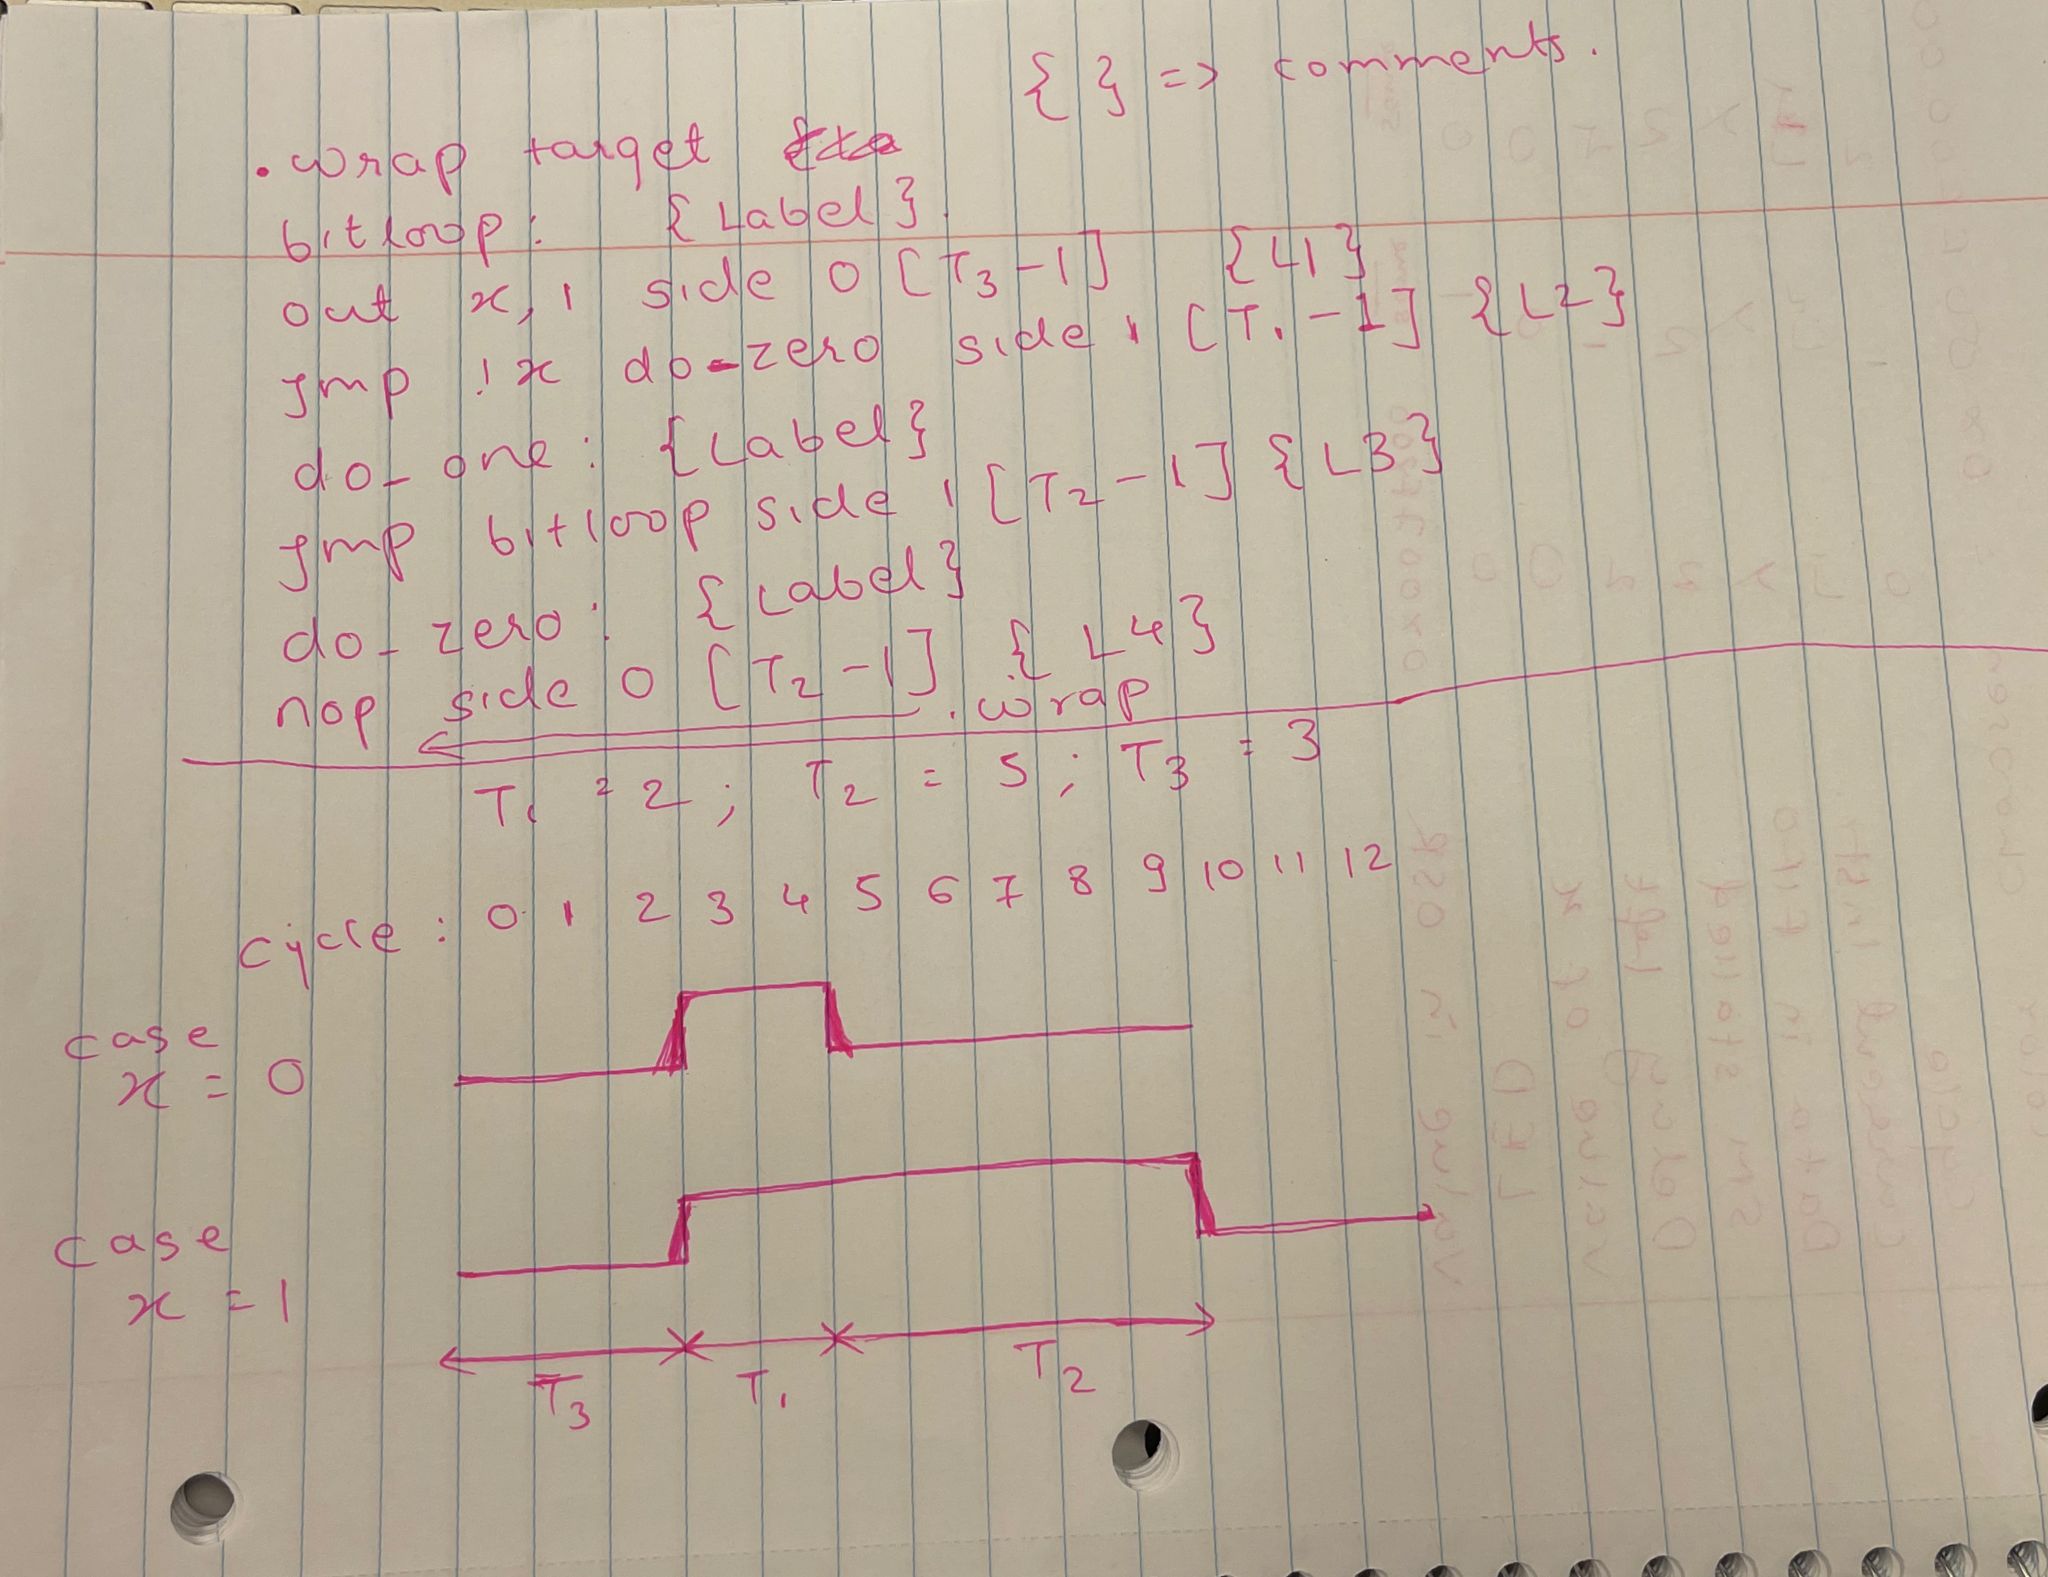 { } => comments.
.wrap target
bitloop: {Label}
out x, 1 side 0 [T3-1] {L1}
jmp !x do-zero side 1 [T1-1] {L2}
do_one: {Label}
jmp bitloop side 1 [T2-1] {L3}
do_zero: {Label}
nop side 0 [T2-1] {L4}
.wrap
T1 = 2; T2 = 5; T3 = 3
cycle: 0 1 2 3 4 5 6 7 8 9 10 11 12
case
x = 0
case
x = 1
T3 T1 T2